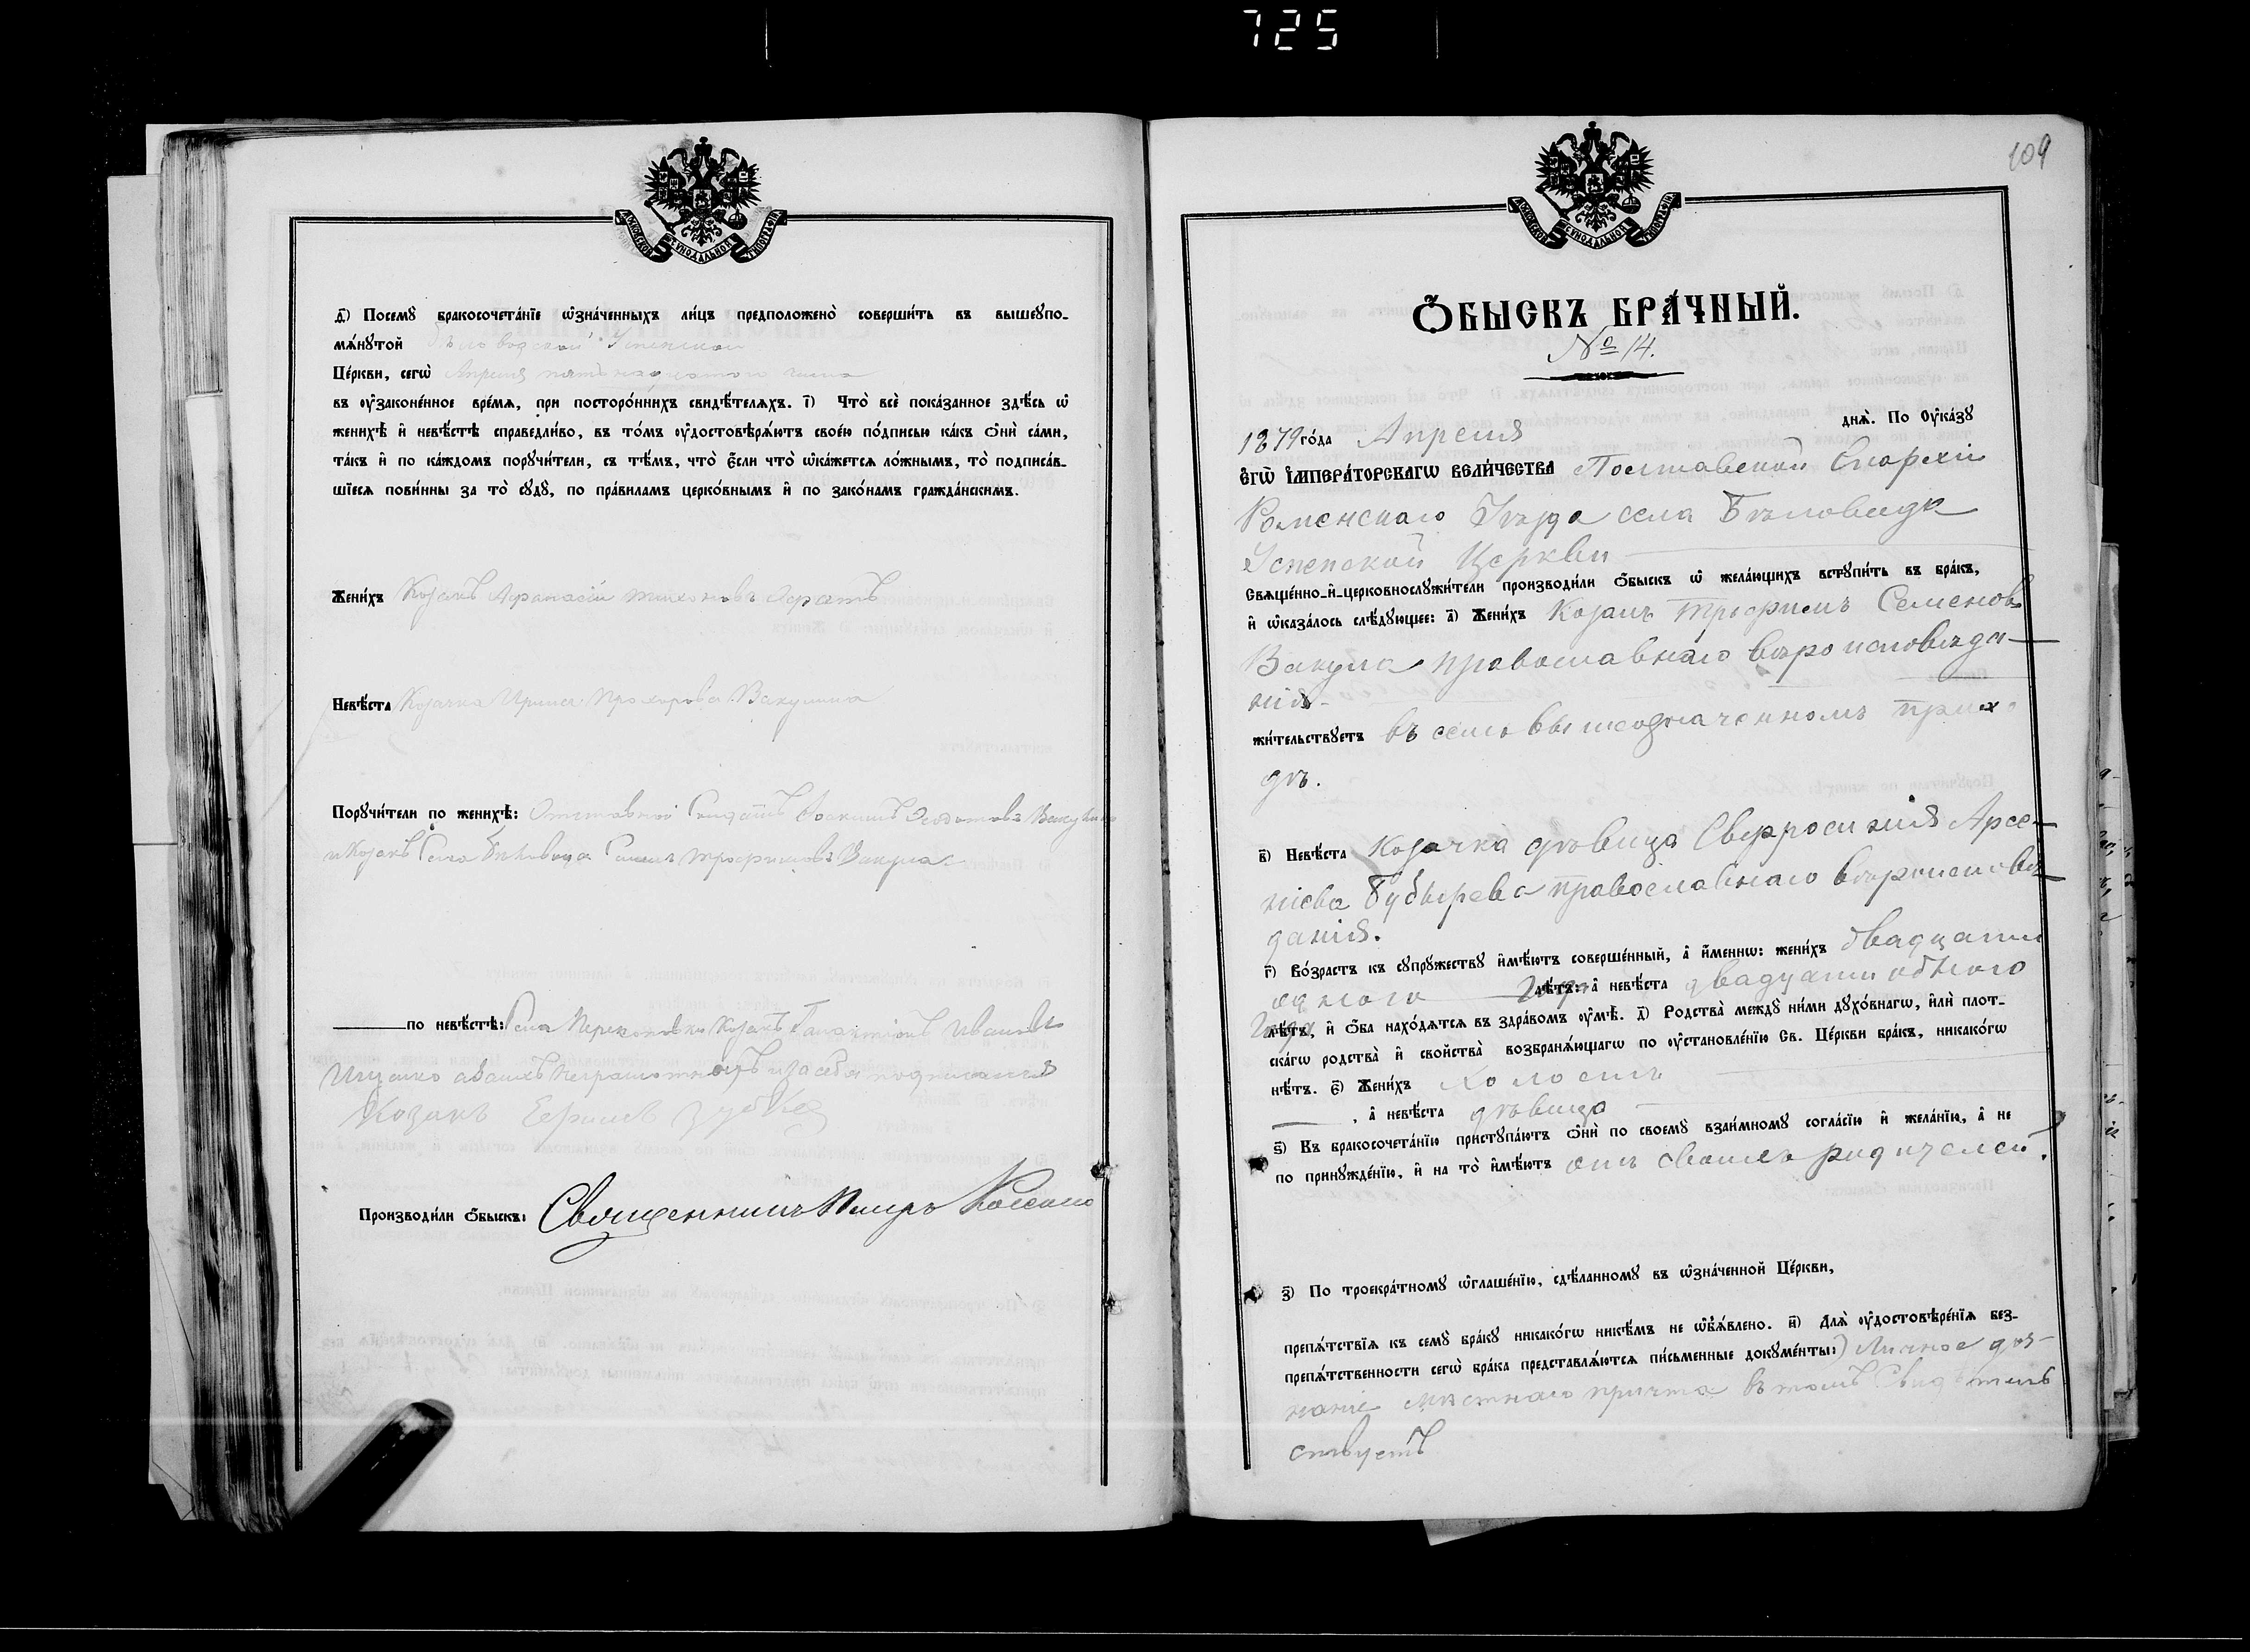 725
МОСКОВСКОЙ СѴНОДАЛЬНОЙ ТИПОГРАФІИ
д҃і) Посемꙋ бракосочета́нїе ѡ҆зна́ченныхъ ли́цъ предположено̀ соверши́ть въ вышеꙋпо-
мѧ́нꙋтой Бѣловодской Успенской
Це́ркви, сегѡ̀ Апреля пятьнадцатого числа
въ ᲂу҆законе́нное вре́мѧ, при посторо́ннихъ свидѣ́телѧхъ. і҃) Что̀ всѐ пока́занное здѣ́сь ѡ҆
женихѣ̀ и҆ невѣ́стѣ справедли́во, въ то́мъ ᲂу҆достовѣрѧ́ютъ свое́ю по́дписью ка́къ ѻ҆нѝ са́ми,
та́къ и҆ по ка́ждомъ порꙋчи́тели, съ тѣ́мъ, что̀ є҆́сли что̀ ѡ҆ка́жетсѧ ло́жнымъ, то̀ подписа́в-
шїесѧ пови́нны за то̀ сꙋдꙋ̀, по пра́виламъ церко́внымъ и҆ по зако́намъ гражда́нскимъ.
Жени́хъ Козакъ Афанасій Тихоновъ
Невѣ́ста Козачка Ирина Прохорова Вакулина
Порꙋчи́тели по женихѣ̀: Отставной Солдатъ Іоакимъ Федотовъ Вакулин
и Козакъ Села Бѣловода Симонъ Трофимовъ Вакула
по невѣ́стѣ: Села Перекоповки Козакъ Иванъ
Ищенко а за ихъ неграмотностью и за себя подписался
Козакъ Ефимъ Зубко
Производи́ли ѻ҆́быскъ: Священникъ Петръ
109
МОСКОВСКОЙ СѴНОДАЛЬНОЙ ТИПОГРАФІИ
Ѻ҆́БЫСКЪ БРА́ЧНЫЙ.
№ 14.
1879 го́да Апреля днѧ̀. По Оу҆ка́зꙋ
Є҆ГѠ̀ І҆МПЕРА́ТОРСКАГѠ ВЕЛИ́ЧЕСТВА Полтавской Епархіи
Роменскаго Уезда села Бѣловода
Успенской Церкви
Свѧще́нно-и҆-церковнослꙋжи́тели производи́ли ѻ҆́быскъ ѡ҆ жела́ющихъ встꙋпи́ть въ бра́къ,
и҆ ѡ҆каза́лось слѣ́дꙋющее: а҃) Жени́хъ Козакъ Трофимъ Семеновъ
Вакула православнаго вѣроисповѣда-
нія.
жи́тельствꙋетъ въ семъ вышеозначенномъ прихо
дѣ.
в҃) Невѣ́ста Козачка дѣвица Евфросинія Арсе-
ніева Бубырева православнаго вѣроисповѣ-
данія.
г҃) Во́зрастъ къ сꙋпрꙋ́жествꙋ и҆мѣ́ютъ соверше́нный, а҆ и҆́меннѡ: жени́хъ двадцати
одного года лѣ́тъ: а҆ невѣ́ста двадцати одного
года лѣ́тъ, и҆ ѻ҆́ба нахо́дѧтсѧ въ здра́вомъ ᲂу҆мѣ̀. д҃) Родства̀ междꙋ̀ ни́ми дꙋхо́внагѡ, и҆лѝ плот-
ска́гѡ родства̀ и҆ свойства̀ возбранѧ́ющагѡ по ᲂу҆становле́нїю Св. Це́ркви бра́къ, никако́гѡ
нѣ́тъ. є҃) Жени́хъ холостъ
, а҆ невѣ́ста дѣвица
ѕ҃) Къ бракосочета́нїю пристꙋпа́ютъ ѻ҆нѝ по своемꙋ̀ взаи́мномꙋ согла́сїю и҆ жела́нїю, а҆ не
по принꙋжде́нїю, и҆ на то̀ и҆мѣ́ютъ отъ своихъ родителей.
з҃) По троекра́тномꙋ ѡ҆глаше́нїю, сдѣ́ланномꙋ въ ѡ҆зна́ченной Це́ркви,
препѧ́тствїѧ къ семꙋ̀ бра́кꙋ никако́гѡ никѣ́мъ не ѡ҆б̾ѧ́влено. и҃) Длѧ̀ ᲂу҆достовѣре́нїѧ без-
препѧ́тственности сегѡ̀ бра́ка представлѧ́ютсѧ пи́сьменные докꙋме́нты:) Личное доз-
наніе мѣстнаго причта въ томъ свидѣтель
ствуетъ